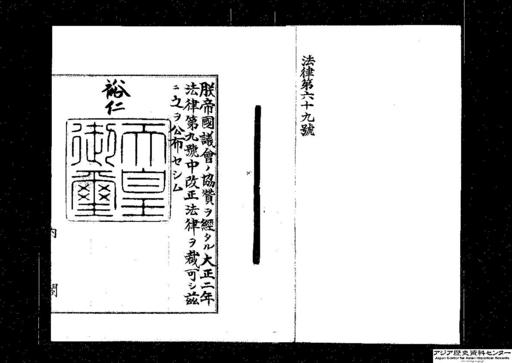 法律第六十九號
朕帝國議會ノ協贊ヲ經タル大正二年
法律第九號中改正法律ヲ裁可シ茲
ニ之ヲ公布セシム
裕仁
天皇
御璽
内閣
アジア歴史資料センター
Japan Center for Asian Historical Records